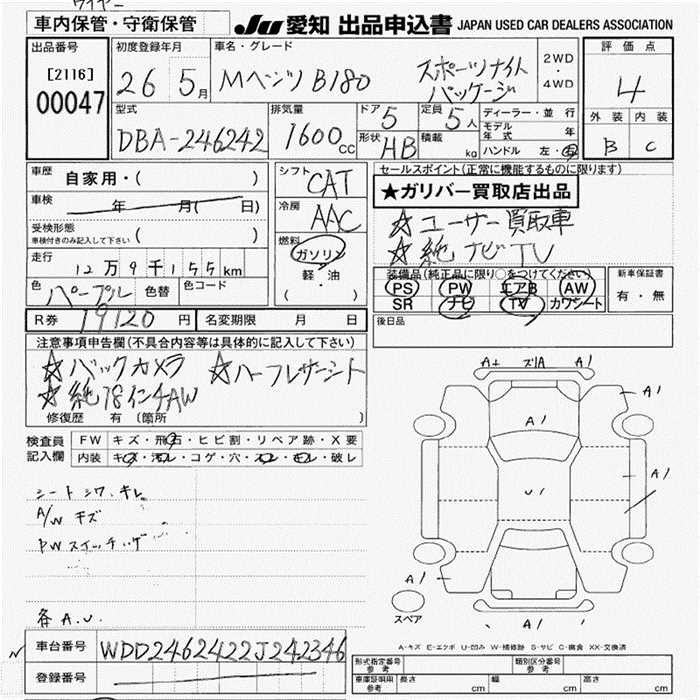 ワイヤー
車内保管・守衛保管
JU 愛知 出品申込書 JAPAN USED CAR DEALERS ASSOCIATION
出品番号
[2116]
00047
初度登録年月
26 5月
車名・グレード
Mベンツ B180 スポーツナイトパッケージ
2WD・4WD
評価点
4
外装 内装
B C
型式
DBA-246242
排気量
1600cc
ドア 5
形状 HB
定員 5人
積載 kg
ディーラー・並行
モデル年式 年
ハンドル 左・右
車歴 自家用・( )
車検 年 月( 日)
受検形態 ( )
車検付きのみ記入して下さい
走行 12万9千155km
色 パープル 色替 色コード
シフト CAT
冷房 AAC
燃料
ガソリン
軽・油
( )
セールスポイント(正常に機能するものに限ります)
★ガリバー買取店出品
☆ユーザー買取車
☆純ナビTV
装備品(純正品に限り○をつけてください)
PS PW エアB AW
SR ナビ TV カワシート
新車保証書
有・無
後日品
R券 19120円 名変期限 月 日
注意事項申告欄(不具合内容等は具体的に記入して下さい)
☆バックカメラ ☆ハーフレザーシート
☆純18インチAW
修復歴 有 (箇所 )
検査員記入欄
FW キズ・飛石・ヒビ割・リペア跡・X要
内装 キズ・汚レ・コゲ・穴・スレ・キレ・破レ
シート シワ、キレ
A/W キズ
PWスイッチハゲ
各A.U.
A1 ズ1A A1
A1
A1
U1
A1
A1
A1
A1
スペア
A-キズ E-エクボ U-凹み W-補修跡 S-サビ C-腐食 XX-交換済
車台番号 WDD2462422J242346
登録番号
形式指定番号 参考
類別区分番号 参考
車庫証明用 参考 長さ cm 幅 cm 高さ cm